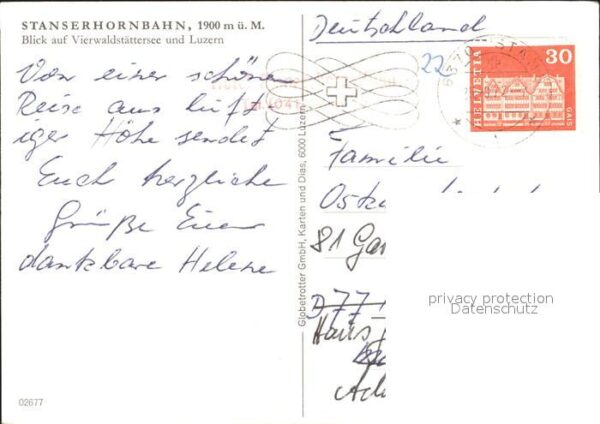 STANSERHORNBAHN, 1900 m ü. M.
Blick auf Vierwaldstättersee und Luzern
Von einer schönen
Reise aus luft
iger Höhe sendet
Euch herzliche
Grüße Eure
dankbare Helene
02677
Globetrotter GmbH, Karten und Dias, 6000 Luzern
Deutschland
22
HELVETIA
30
GAIS
Familie
81 Gar
D 77
Haus
privacy protection
Datenschutz